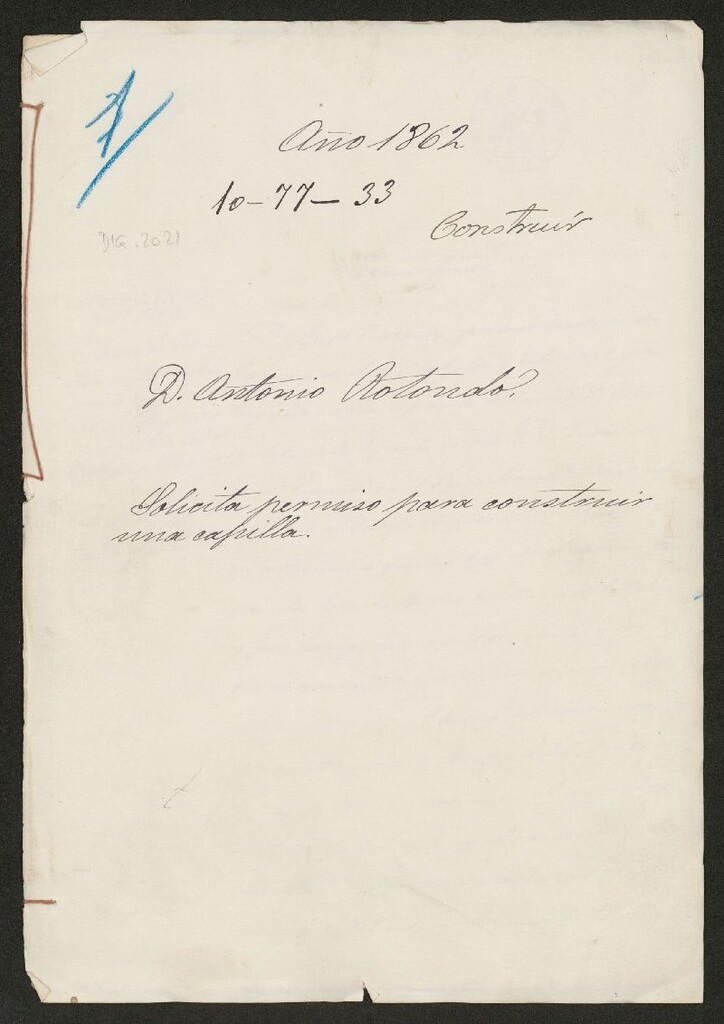 Año 1862
10-77-33
Construir
DIG. 2021
D. Antonio Rotondo.
Solicita permiso para construir
una capilla.